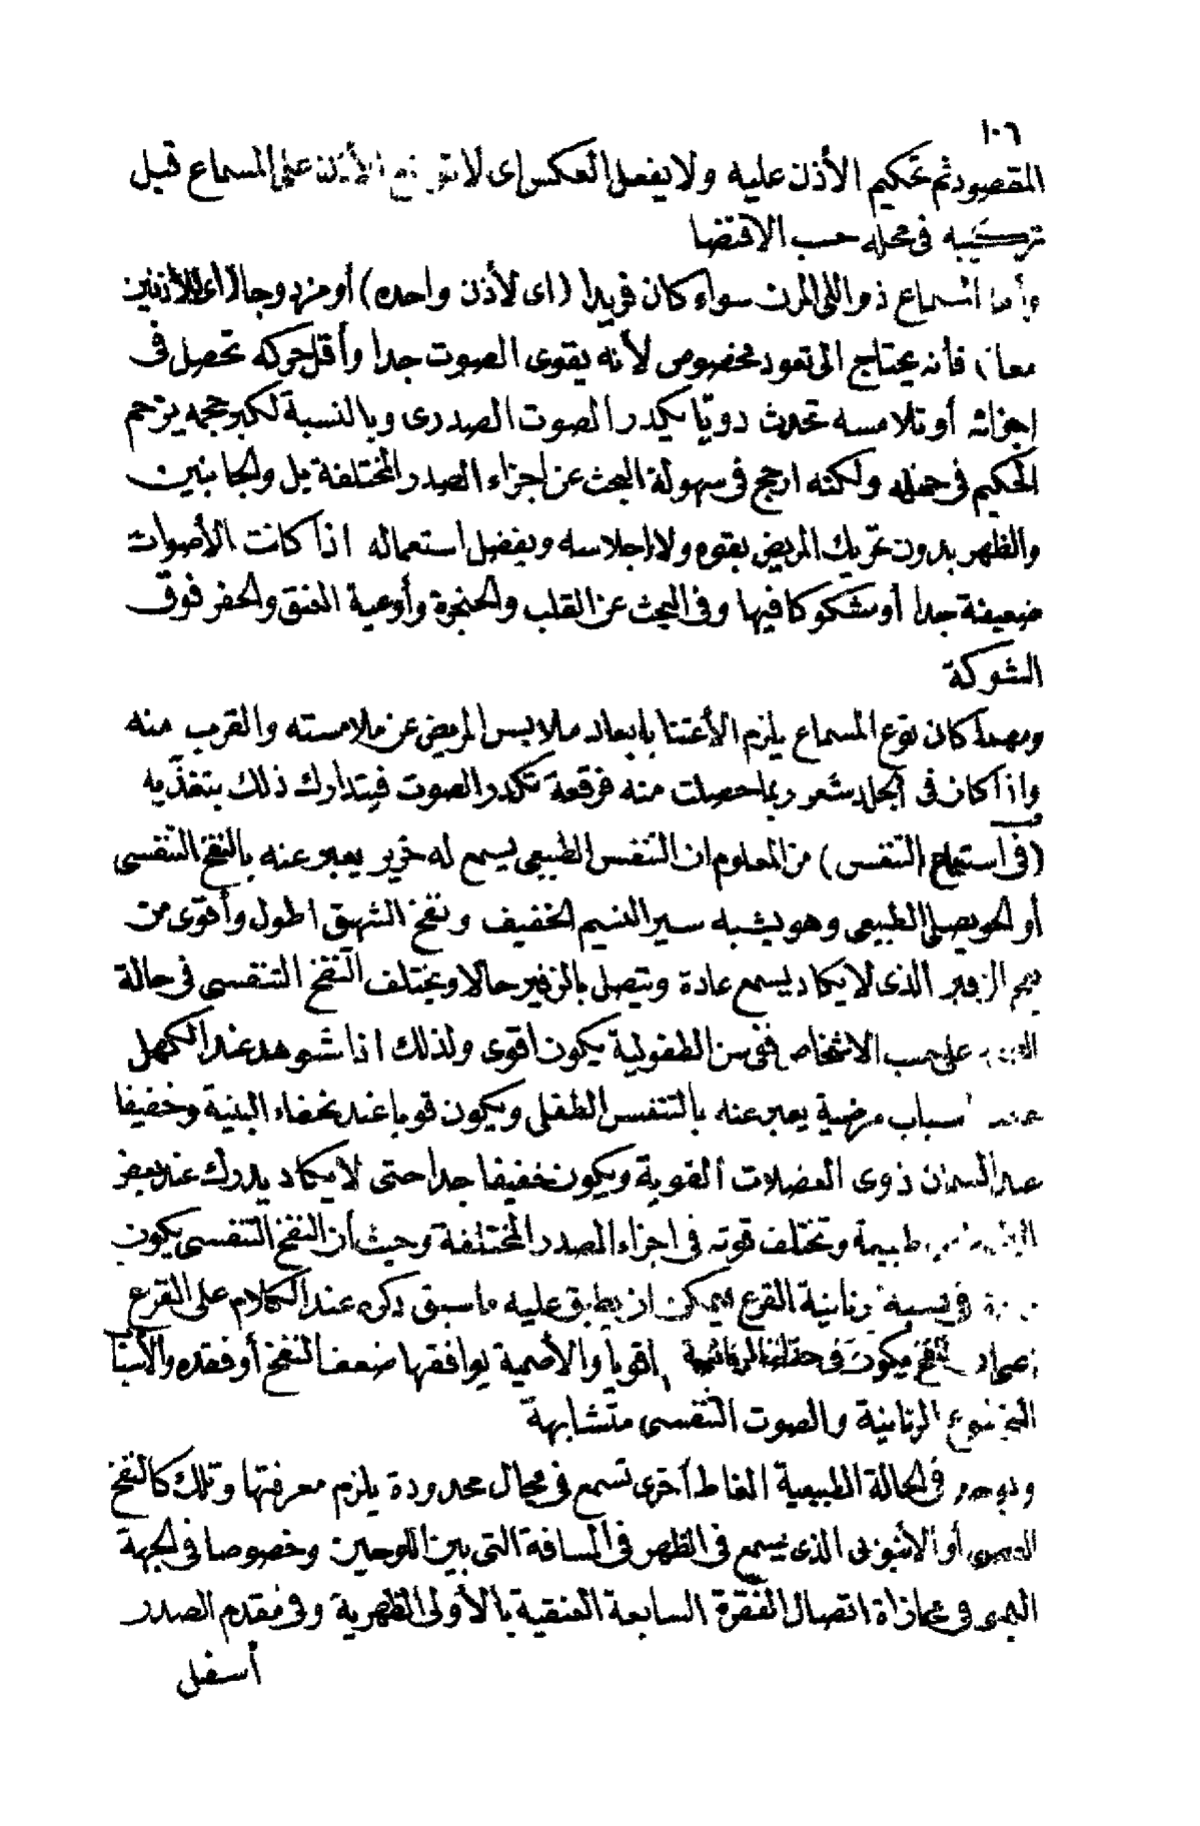 ١٠٦
المقصود ثم تحكيم الأذن عليه ولا يفعل العكس اى لا توضع الأذن على المسماع قبل
تركيبه فى محله حسب الاقتضا
وأما المسماع ذو اللى المرن سواء كان فريدا (اى لأذن واحده) أو مزدوجا (اى للأذنين
معا) فأنه يحتاج الى تعود مخصوص لأنه يقوى الصوت جدا وأقل حركه تحصل فى
اجزائه أو تلامسه تحدث دويّا يكدر الصوت الصدرى وبالنسبة لكبر حجمه يزحم
الحكيم فى حمله ولكنه ارجح فى سهولة البحث عن اجزاء الصدر المختلفة بل والجانبين
والظهر بدون تحريك المريض بقوه ولا اجلاسه ويفضل استعماله اذا كانت الأصوات
ضعيفة جدا أو مشكوكا فيها وفى البحث عن القلب والحنجرة وأوعية العنق والحفر فوق
الشوكة
ومهما كان نوع المسماع يلزم الأعتنا بابعاد ملابس المريض عن ملامسته والقرب منه
واذا كان فى الجلد شعر ربما حصلت منه فرقعة تكدر الصوت فيتدارك ذلك بتنديه
(فى استماع التنفس) من المعلوم ان التنفس الطبيعى يسمع له خرير يعبر عنه بالنفخ التنفسى
أو الحويصلى الطبيعى وهو يشبه سير النسيم الخفيف ونفخ الشهيق اطول وأقوى من
نفخ الزفير الذى لا يكاد يسمع عادة ويتصل بالزفير حالا ويختلف النفخ التنفسى فى حالة
على حسب الاشخاص ففى سن الطفولية يكون اقوى ولذلك اذا شوهد عند الكهل
اسباب مرضية يعبر عنه بالتنفس الطفلى ويكون قويا عند نحفاء البنية وخفيفا
عند السمان ذوى العضلات القوية ويكون خفيفا جدا حتى لا يكاد يدرك عند بعض
طبيعة وتختلف قوته فى اجزاء الصدر المختلفة وحيث أن النفخ التنفسى يكون
فى نسبة رنانية القرع فيمكن ان يطبق عليه ما سبق ذكره عند الكلام على القرع
النفخ يكون فى حقاق الرنانية اقويا والأصمية يوافقها ضعف النفخ أو فقده والأسبا
الرنانية والصوت التنفسى متشابهة
ويوجد فى الحالة الطبيعية الغاط أخرى تسمع فى محال محدودة يلزم معرفتها وتلك كالنفخ
القصبى أو الأنبوبى الذى يسمع فى الظهر فى المسافة التى بين اللوحين وخصوصا فى الجهة
اليمنى فى محاذاة اتصال الفقرة السابعة العنقية بالأولى الظهرية وفى مقدم الصدر
أسفل